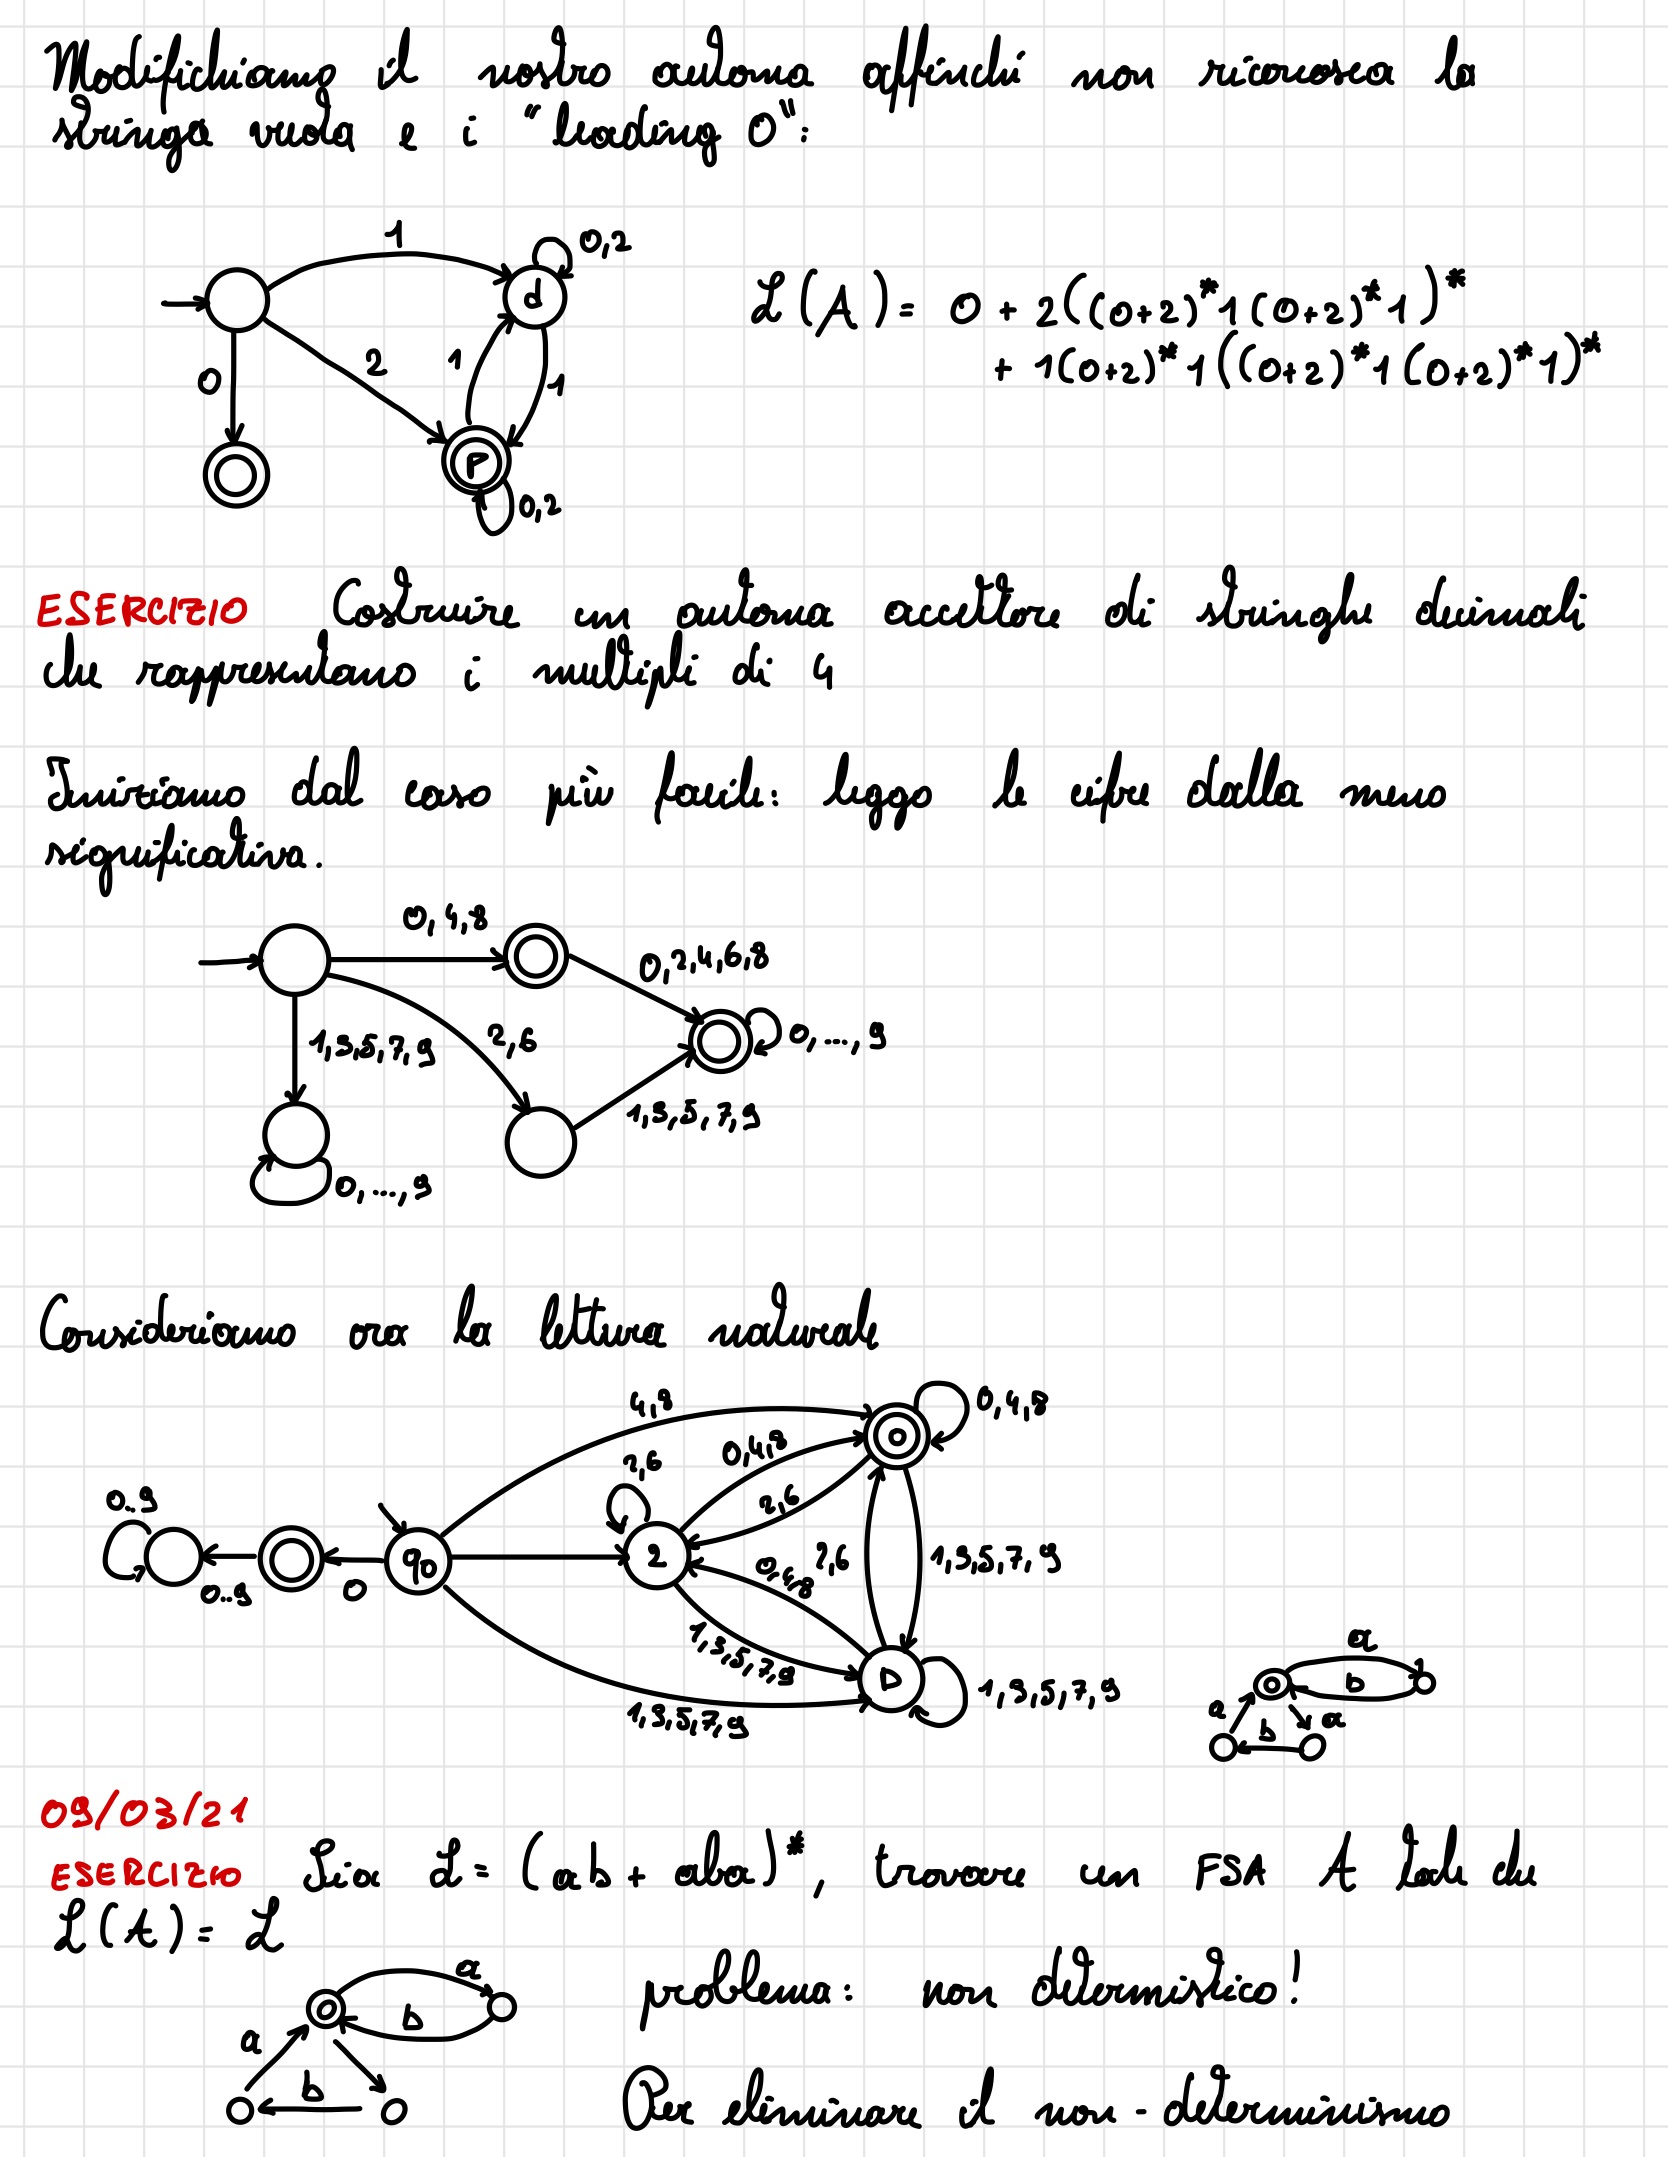 Modifichiamo il nostro automa affinché non riconosca la
stringa vuota e i "leading 0":
1
0,2
d
2
1
1
0
P
0,2
L(A) = 0 + 2((0+2)*1(0+2)*1)*
+ 1(0+2)*1((0+2)*1(0+2)*1)*
ESERCIZIO Costruire un automa accettore di stringhe decimali
che rappresentano i multipli di 4
Iniziamo dal caso più facile: leggo le cifre dalla meno
significativa.
0,4,8
0,2,4,6,8
1,3,5,7,9
2,6
0,...,9
1,3,5,7,9
0,...,9
Consideriamo ora la lettura naturale
4,8
0,4,8
0,4,8
2,6
0
2,6
0..9
q0
2
0,4,8
2,6
1,3,5,7,9
0..9
0
1,3,5,7,9
D
1,3,5,7,9
1,3,5,7,9
a
b
a
b
a
09/03/21
ESERCIZIO Sia L = (ab + aba)*, trovare un FSA A tale che
L(A) = L
a
b
a
b
problema: non determistico!
Per eliminare il non-determinismo